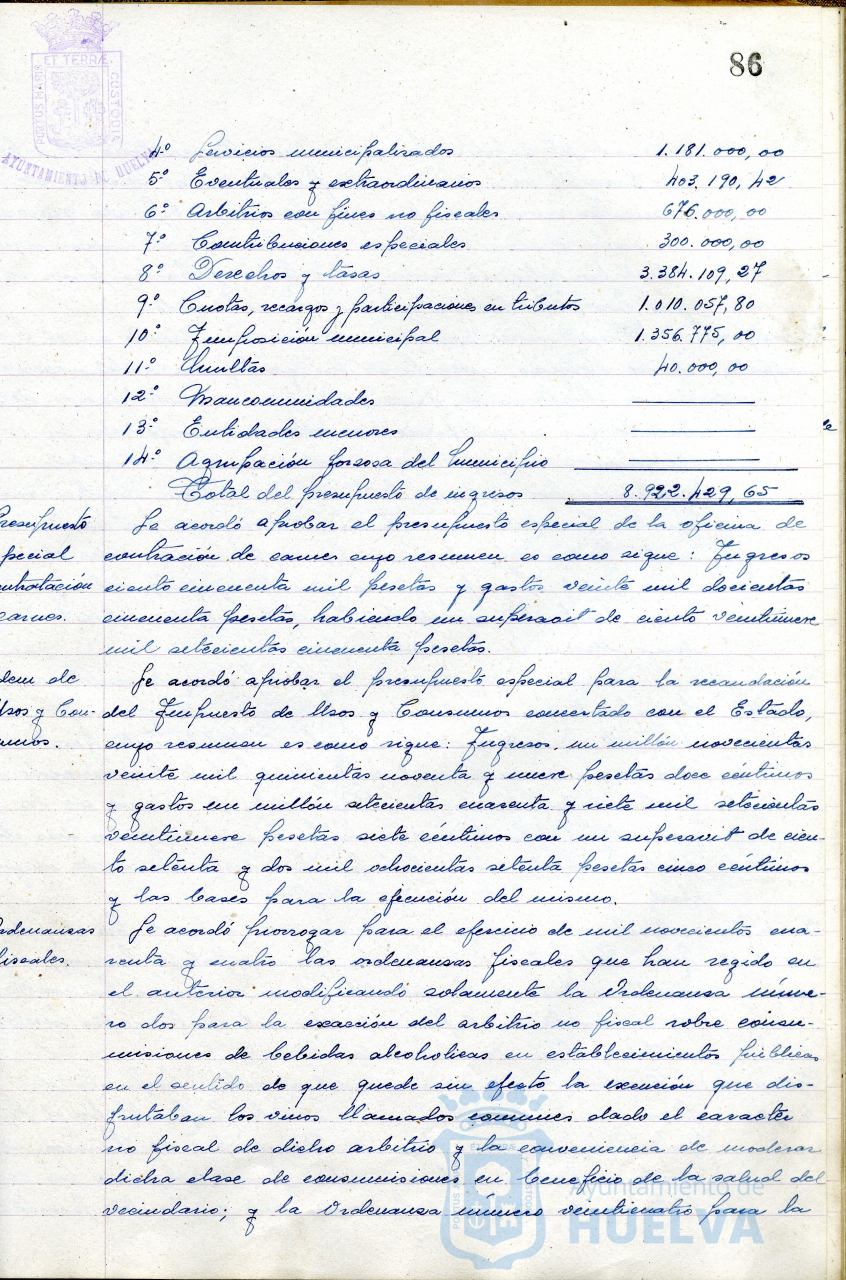 86
ET TERRÆ
PORTUS MARIS
CUSTODIA
AYUNTAMIENTO DE HUELVA
4º Servicios municipalizados 1.181.000,00
5º Eventuales y extraordinarios 403.190,42
6º Arbitrios con fines no fiscales 676.000,00
7º Contribuciones especiales 300.000,00
8º Derechos y tasas 3.384.109,27
9º Cuotas, recargos y participaciones en tributos 1.010.057,80
10º Imposición municipal 1.356.775,00
11º Multas 40.000,00
12º Mancomunidades
13º Entidades menores
14º Agrupación forzosa del Municipio
Total del presupuesto de ingresos 8.922.429,65
Presupuesto
pecial
ntratación
carnes.
Se acordó aprobar el presupuesto especial de la oficina de
contración de carnes cuyo resumen es como sigue: Ingresos
ciento cincuenta mil pesetas y gastos veinte mil docientas
cincuenta pesetas, habiendo un superavit de ciento veintinueve
mil setecientas cincuenta pesetas.
dem de
Usos y Con-
umos.
Se acordó aprobar el presupuesto especial para la recaudación
del Impuesto de Usos y Consumos concertado con el Estado,
cuyo resumen es como sigue: Ingresos. un millón novecientas
veinte mil quinientas noventa y nueve pesetas doce céntimos
y gastos un millón setecientas cuarenta y siete mil setecientas
veintinueve pesetas siete céntimos con un superavit de cien-
to setenta y dos mil ochocientas setenta pesetas cinco céntimos
y las bases para la ejecución del mismo.
rdenanzas
fiscales.
Se acordó prorrogar para el ejercicio de mil novecientos cua-
renta y cuatro las ordenanzas fiscales que han regido en
el anterior modificando solamente la Ordenanza núme-
ro dos para la exacción del arbitrio no fiscal sobre consu-
misiones de bebidas alcoholicas en establecimientos públicos
en el sentido de que quede sin efecto la exención que dis-
frutaban los vinos llamados comunes dado el caracter
no fiscal de dicho arbitrio y la conveniencia de moderar
dicha clase de consumisiones en beneficio de la salud del
vecindario; y la Ordenanza número veinticuatro para la
Ayuntamiento de
HUELVA